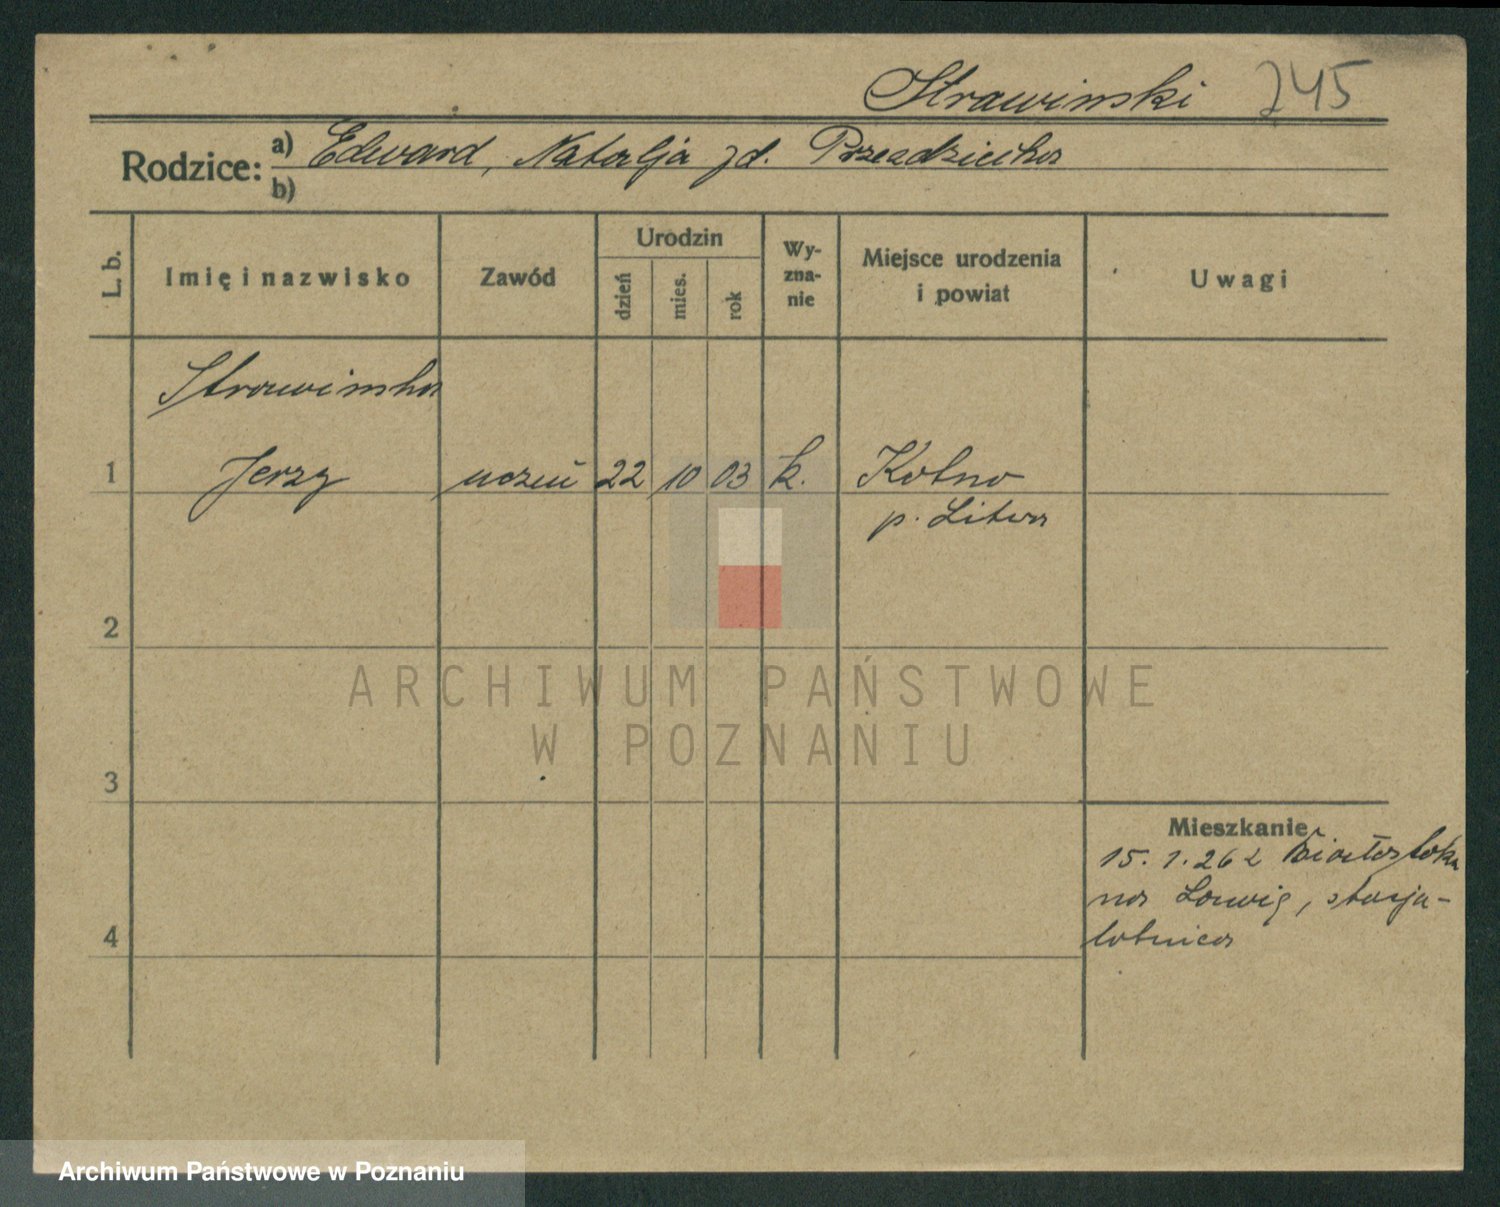 Strawinski 245
Rodzice: a) Edward, Natalja zd. Przezdziecka
b)
L. b. Imię i nazwisko Zawód Urodzin dzień mies. rok Wy-zna-nie Miejsce urodzenia i powiat Uwagi
Strawinska
1 Jerzy uczeń 22 10 03 k. Kowno
p. Litwa
2
ARCHIWUM PAŃSTWOWE
W POZNANIU
3
Mieszkanie
15. 1. 26 z Białostoka
na Ławicę, stacja
4 lotnicza
Archiwum Państwowe w Poznaniu